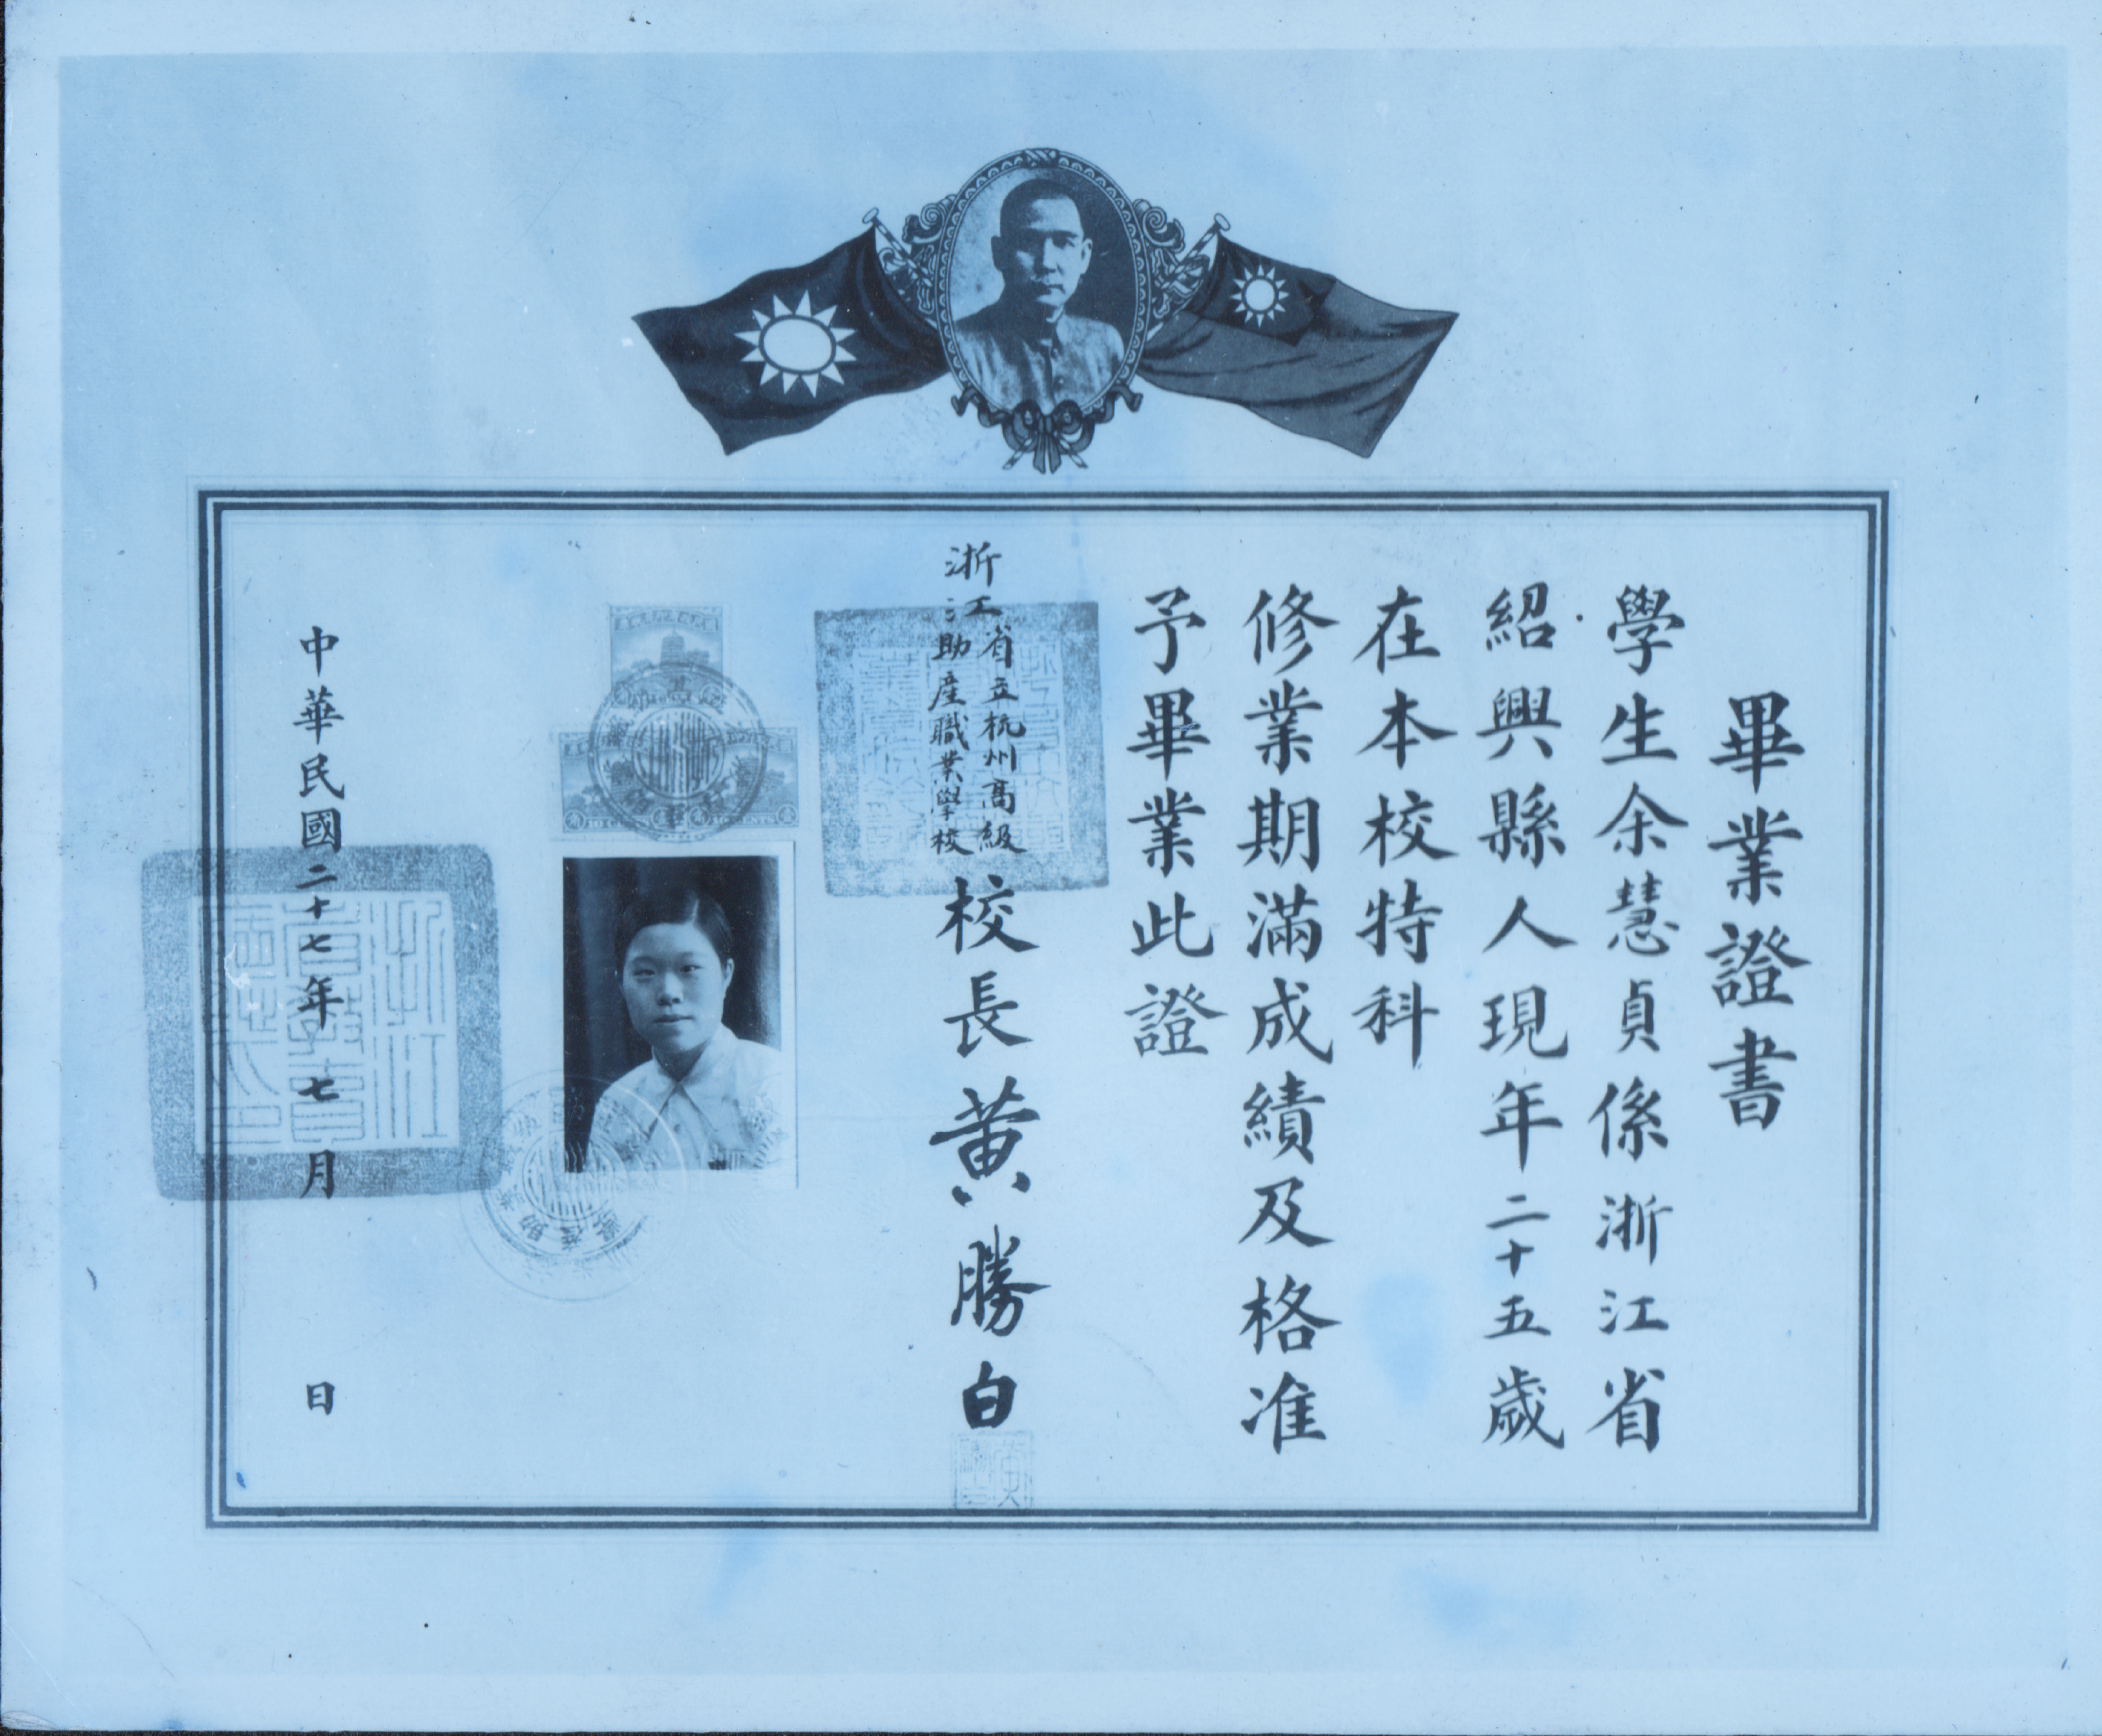 畢業證書
學生余慧貞係浙江省
紹興縣人現年二十五歲
在本校特科
修業期滿成績及格准
予畢業此證
浙江省立杭州高級助產職業學校
校長黃勝白
中華民國二十七年七月 日